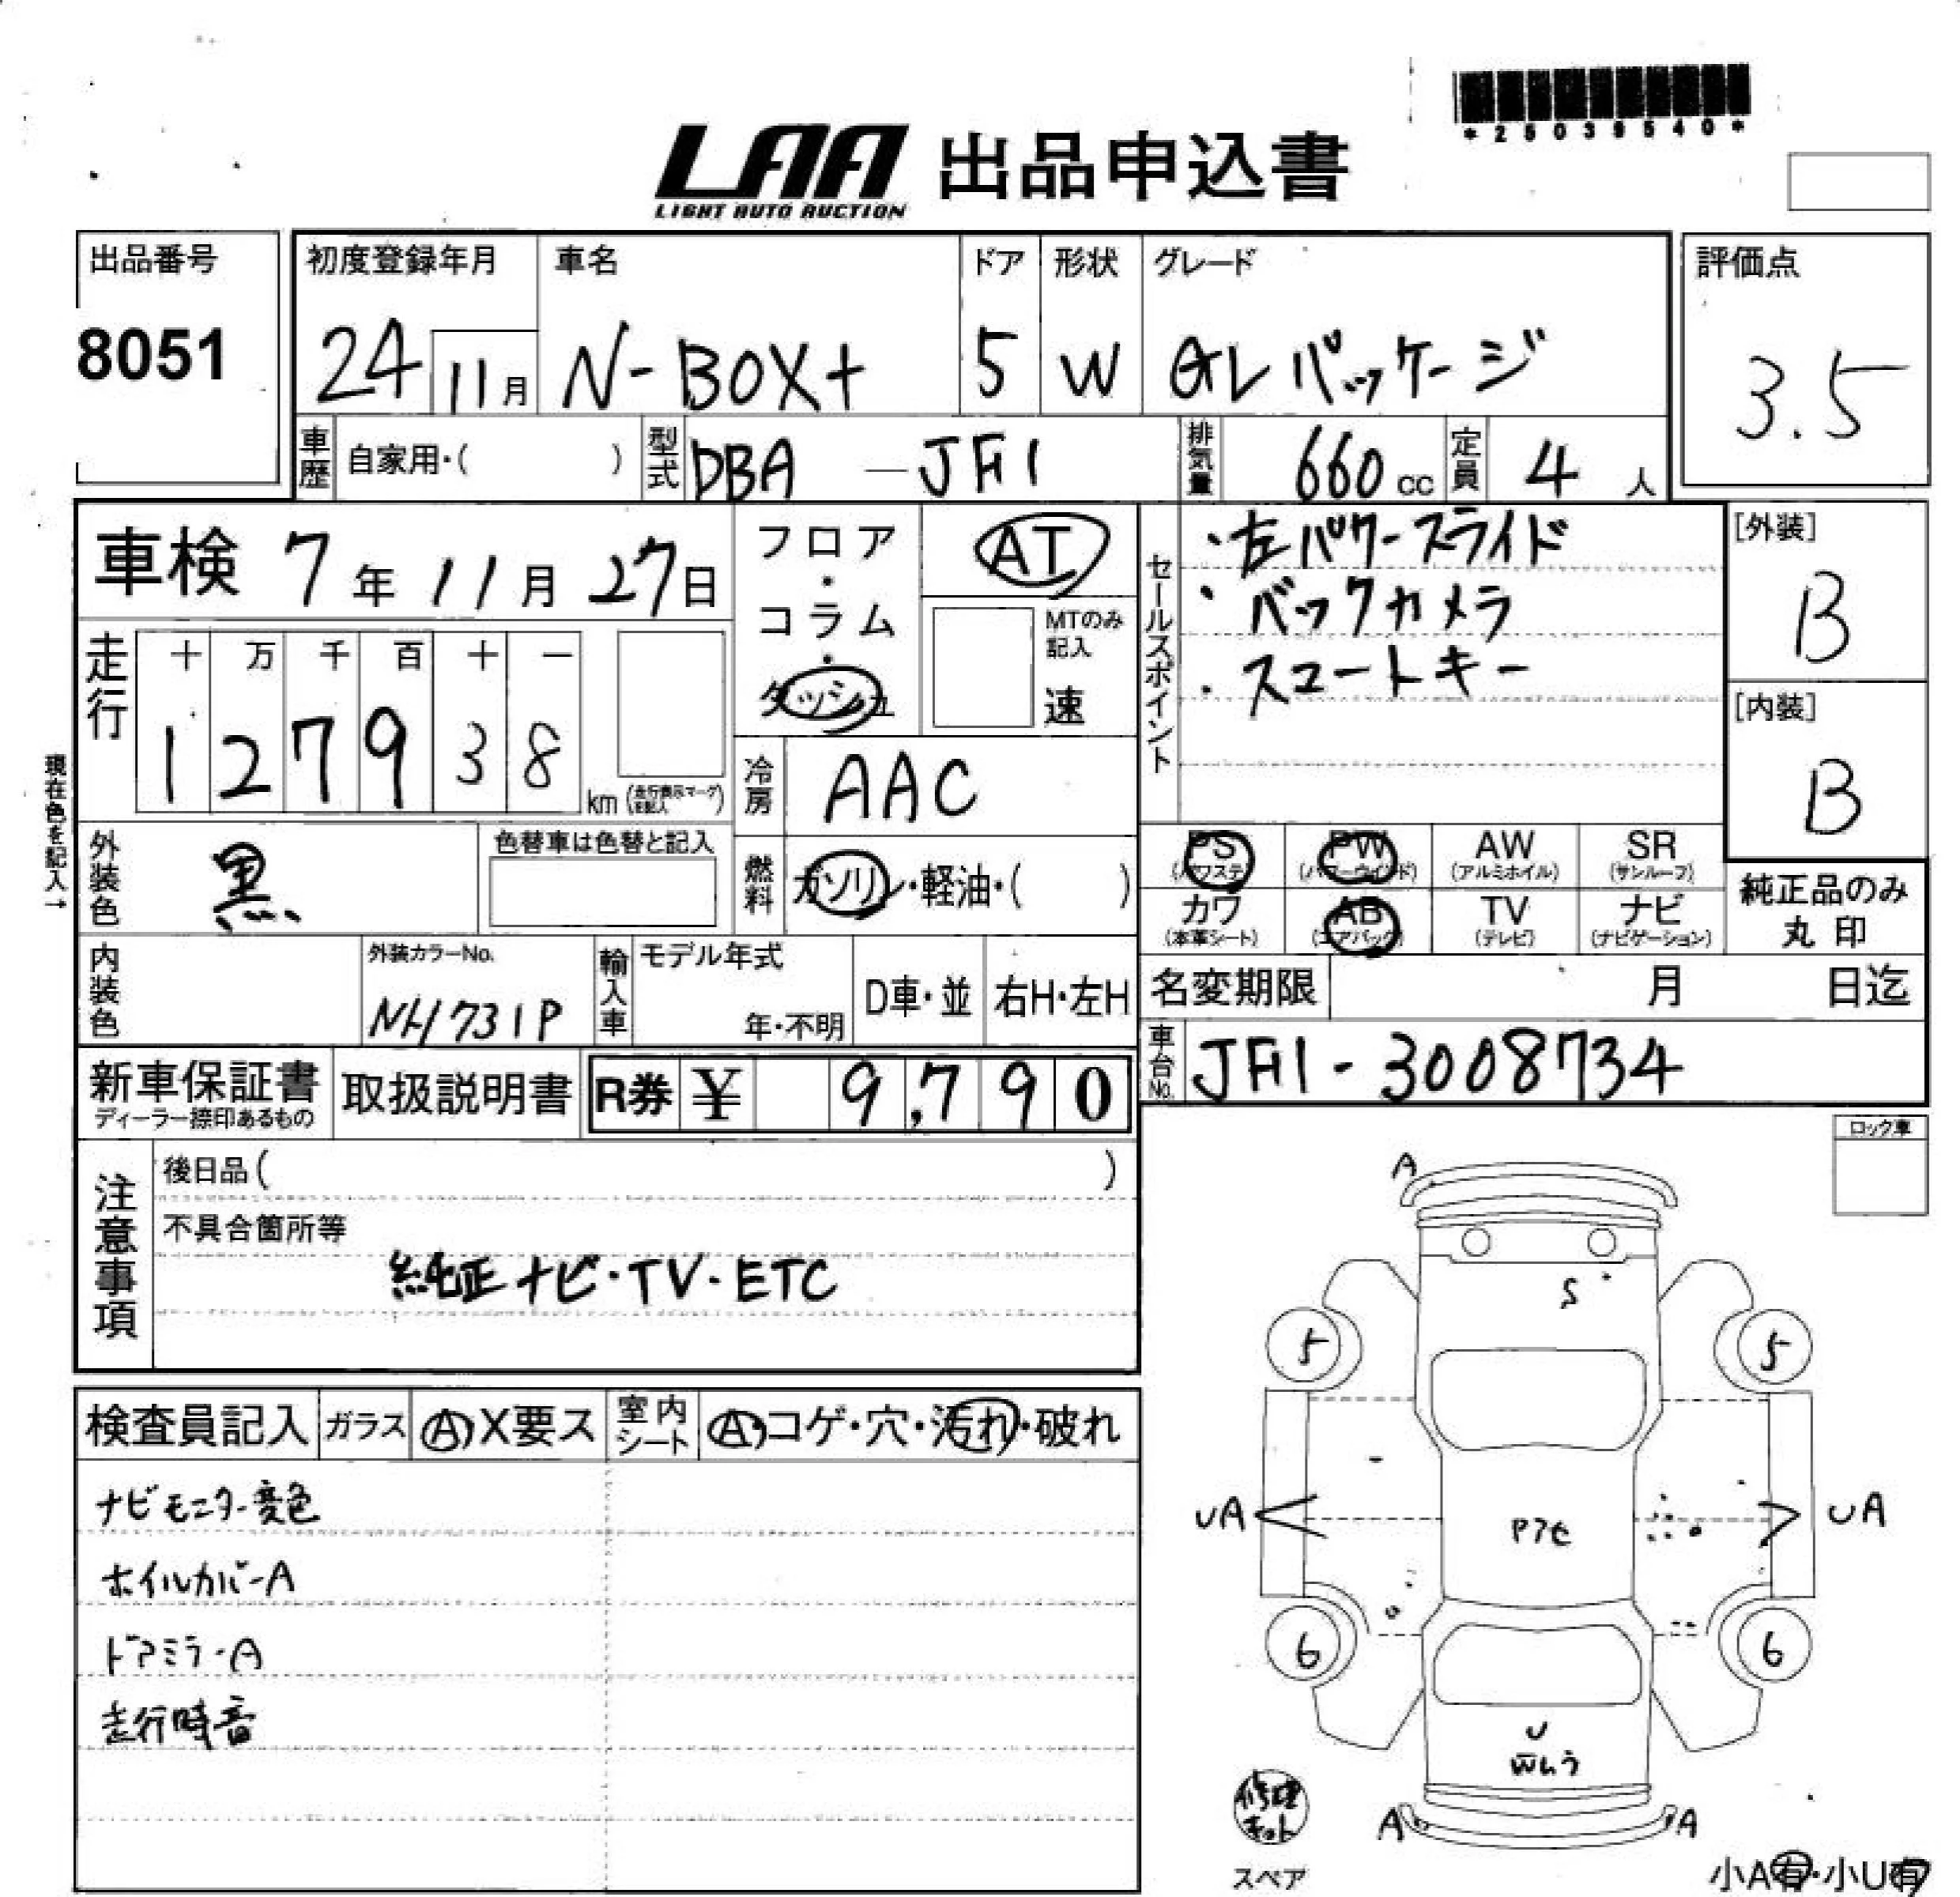 *25039540*
LAA 出品申込書
LIGHT AUTO AUCTION
出品番号
8051
初度登録年月 車名 ドア 形状 グレード
24 11月 N-BOX+ 5 W GLパッケージ
評価点
3.5
車歴 自家用・( ) 型式 DBA - JF1 排気量 660 cc 定員 4 人
車検 7年 11月 27日
フロア・コラム・ダッシュ
AT
MTのみ記入
速
セールスポイント
・左パワースライド
・バックカメラ
・スマートキー
[外装]
B
[内装]
B
走行
十 万 千 百 十 一
1 2 7 9 3 8
km (走行表示マークを記入)
現在色を記入→
冷房 AAC
外装色 黒
色替車は色替と記入
燃料 ガソリン・軽油・( )
PS (パワステ) PW (パワーウインド) AW (アルミホイル) SR (サンルーフ)
カワ (本革シート) AB (エアバック) TV (テレビ) ナビ (ナビゲーション)
純正品のみ
丸印
内装色
外装カラーNo.
NH731P
輸入車 モデル年式
年・不明
D車・並 右H・左H
名変期限 月 日迄
車台No. JF1-3008734
新車保証書
ディーラー捺印あるもの
取扱説明書
R券 ¥ 9,790
注意事項
後日品( )
不具合箇所等
純正ナビ・TV・ETC
ロック車
検査員記入 ガラス A・X要ス 室内シート A・コゲ・穴・汚れ・破れ
ナビモニター変色
ホイルカバーA
ドアミラーA
走行時音
A
S
5 5
UA UA
Pアセ
6 6
U
Wムラ
A A
修理キット
スペア
小A有・小U有